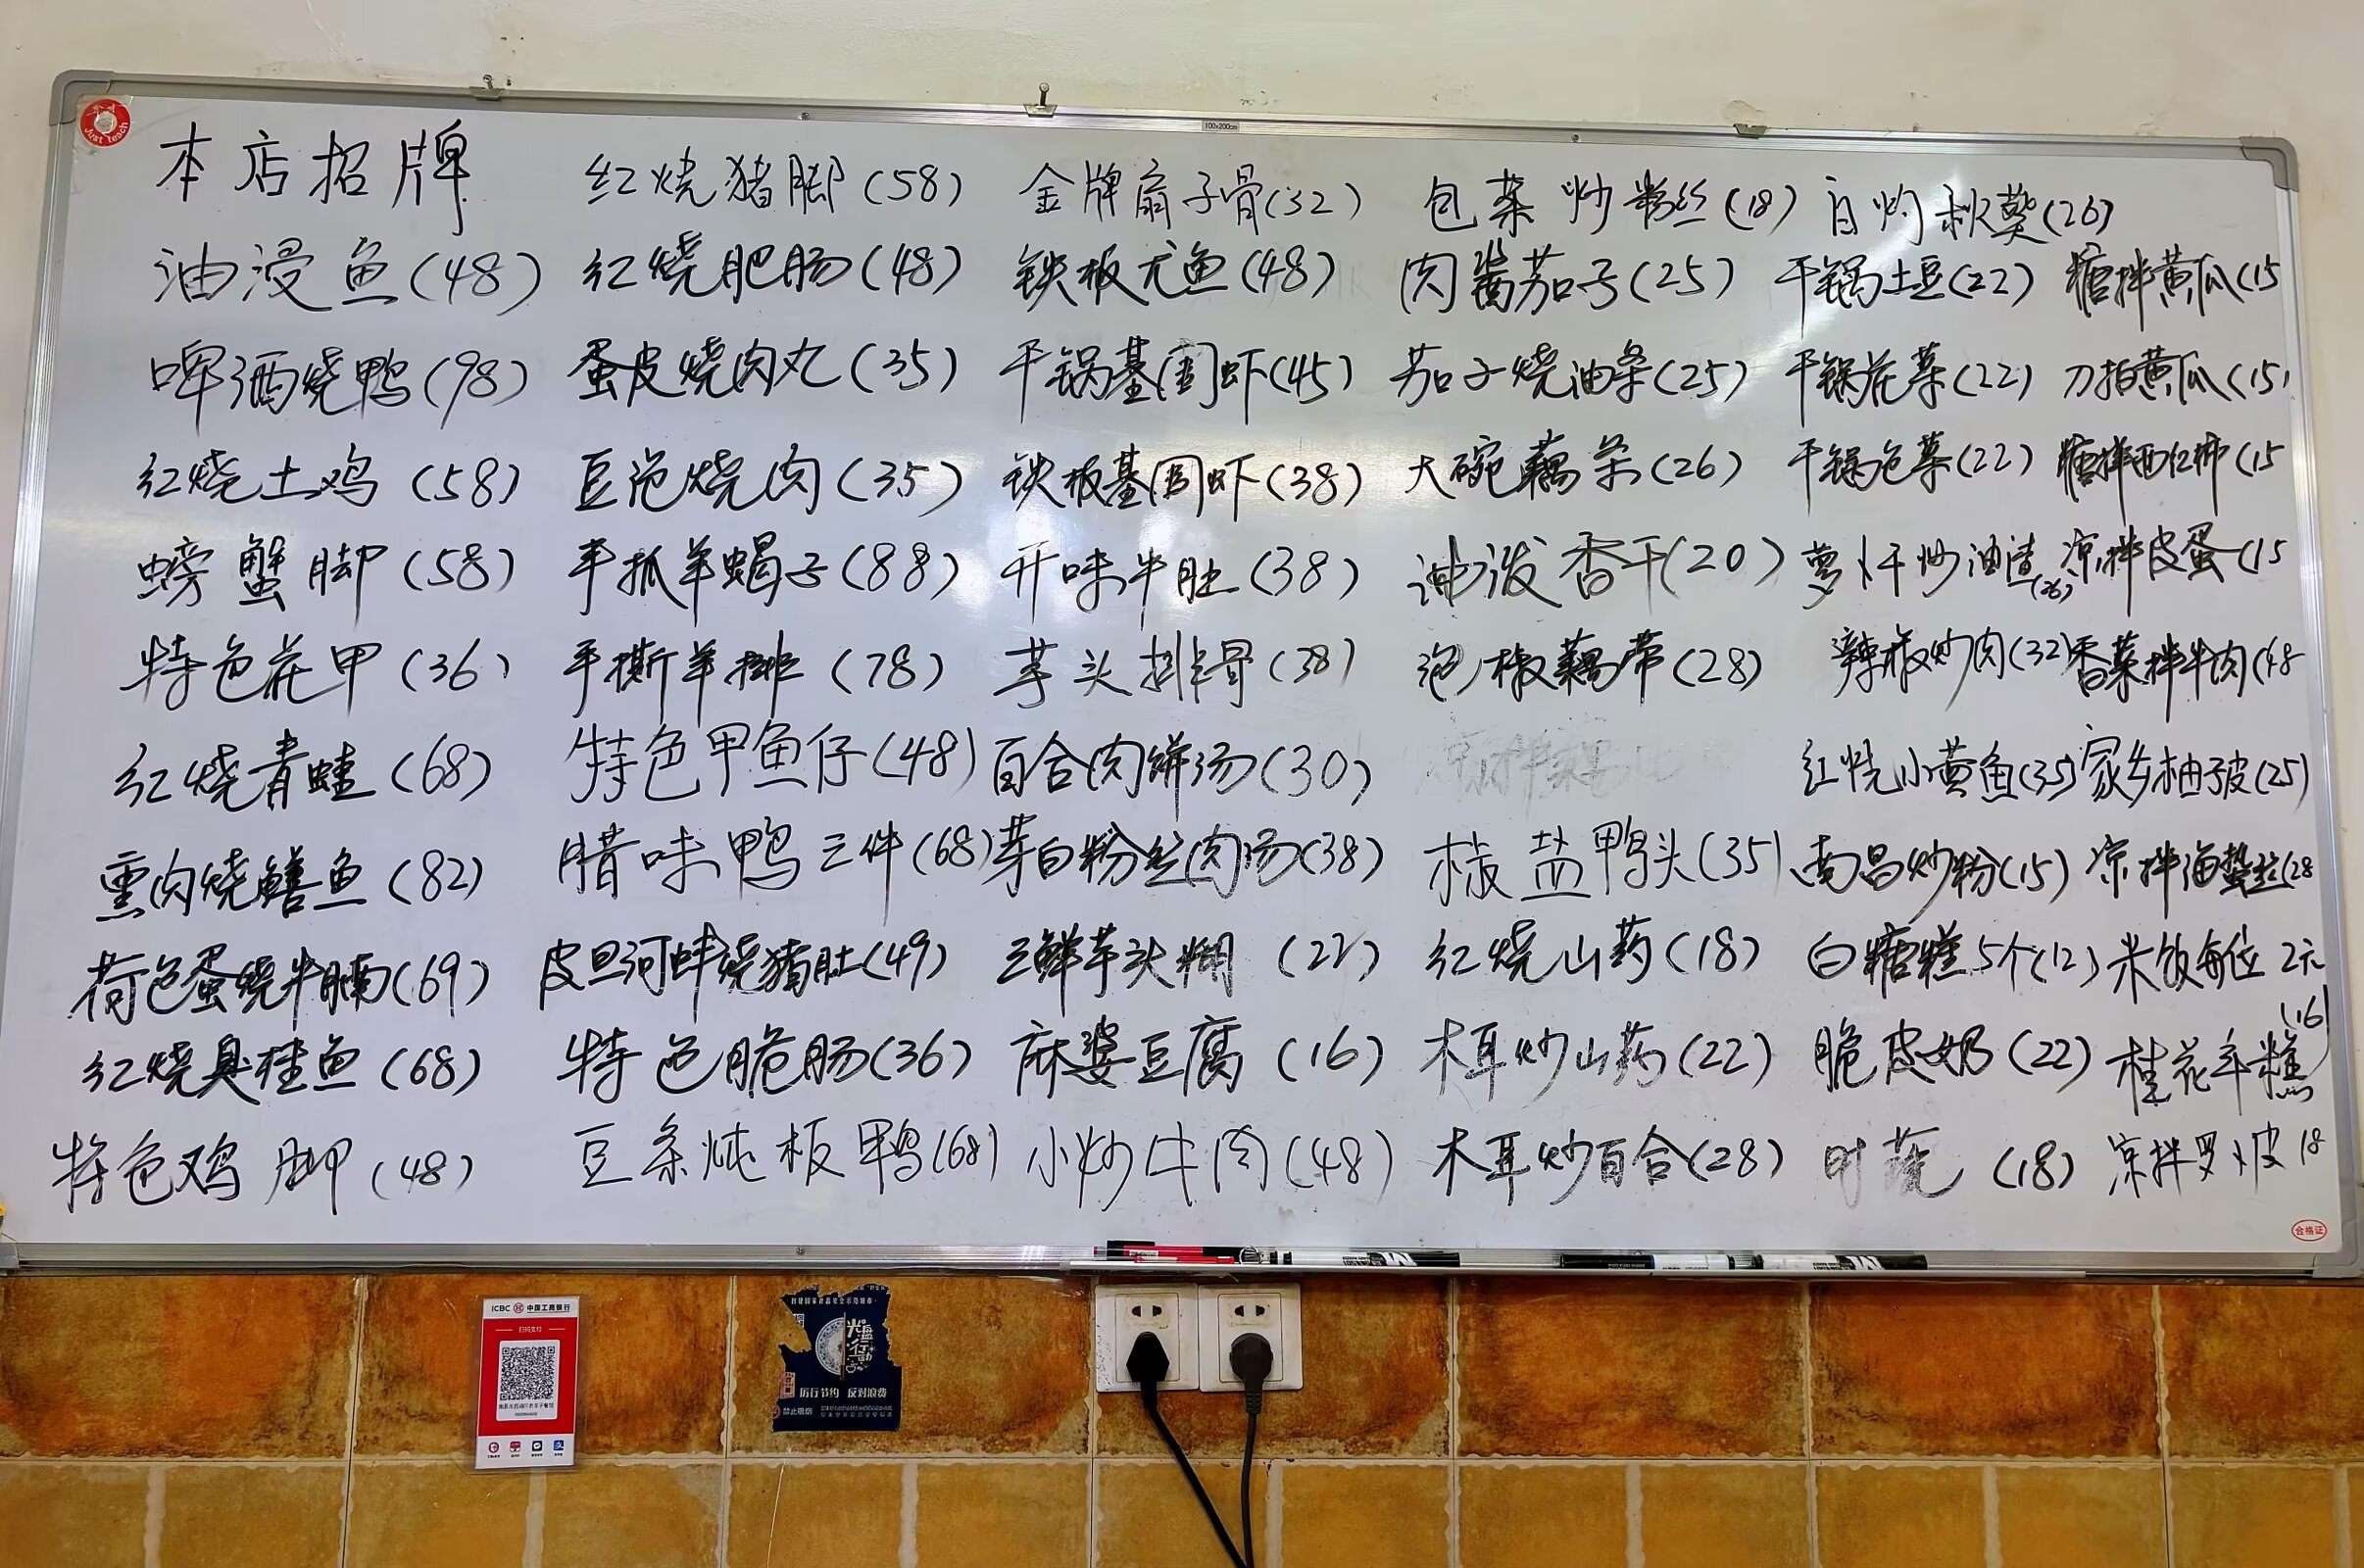 本店招牌
油浸鱼(48)
啤酒烧鸭(98)
红烧土鸡(58)
螃蟹脚(58)
特色花甲(36)
红烧青蛙(68)
熏肉烧鳝鱼(82)
荷包蛋烧牛腩(69)
红烧臭桂鱼(68)
特色鸡脚(48)
红烧猪脚(58)
红烧肥肠(48)
蛋皮烧肉丸(35)
豆泡烧肉(35)
手抓羊蝎子(88)
手撕羊排(78)
特色甲鱼仔(48)
腊味鸭三件(68)
皮旦河蚌烧猪肚(49)
特色脆肠(36)
豆条炖板鸭(68)
金牌扇子骨(32)
铁板尤鱼(48)
干锅基围虾(45)
铁板基围虾(38)
开味牛肚(38)
芋头排骨(38)
百合肉饼汤(30)
芽白粉丝肉汤(38)
三鲜芋头糊(22)
麻婆豆腐(16)
小炒牛肉(48)
包菜炒粉丝(18)
肉酱茄子(25)
茄子烧油条(25)
大碗藕条(26)
油泼香干(20)
泡椒藕带(28)
凉拌藕
椒盐鸭头(35)
红烧山药(18)
木耳炒山药(22)
木耳炒百合(28)
白灼秋葵(26)
干锅土豆(22)
干锅花菜(22)
干锅包菜(22)
萝卜干炒油渣(26)
辣椒炒肉(32)
红烧小黄鱼(35)
南昌炒粉(15)
白糖糕5个(12)
脆皮奶(22)
时蔬(18)
糖拌黄瓜(15
刀拍黄瓜(15)
糖拌西红柿(15
凉拌皮蛋(15
香菜拌牛肉(48
家乡柚子皮(25)
凉拌海蜇丝(28
米饭每位2元
桂花年糕(16)
凉拌罗卜皮18
Just teach
100x200cm
合格证
ICBC 中国工商银行
扫码支付
光盘行动
厉行节约 反对浪费
禁止吸烟